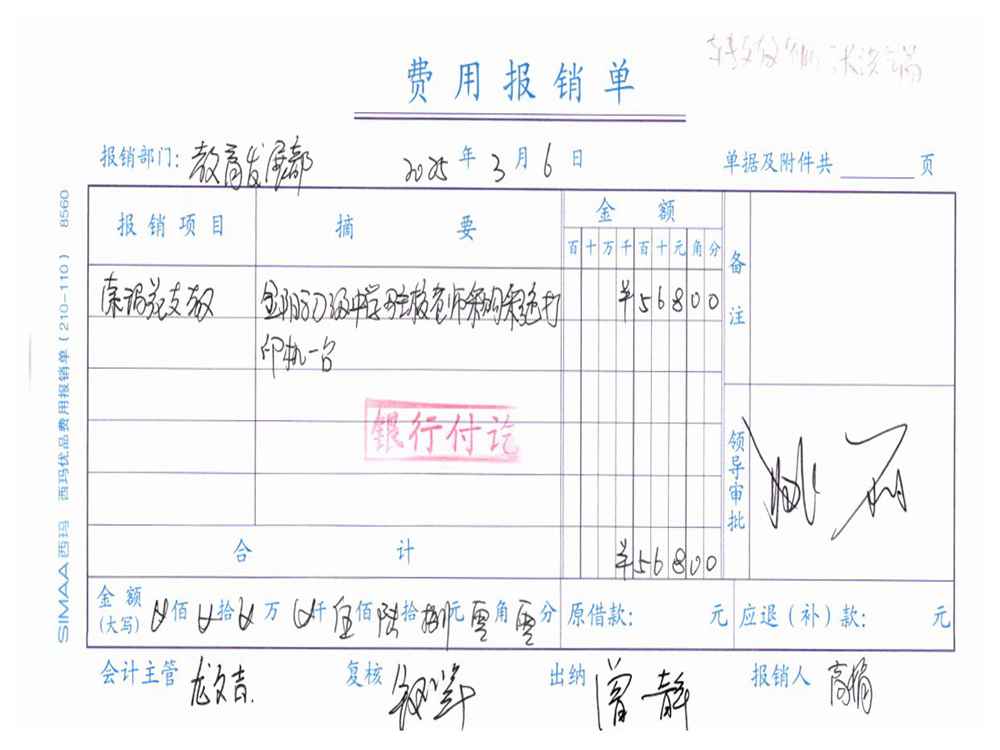 费用报销单
报销部门: 教育发展部 2025 年 3 月 6 日 单据及附件共 页
报销项目 摘要 金额 备注
百 十 万 千 百 十 元 角 分
金阳 初级中学 驻校 老师采购彩色打 ¥56800
印机一台
银行付讫
领导审批
合计 ¥56800
金额(大写) 佰 拾 万 千 伍佰 陆拾 捌元 零角 零分 原借款: 元 应退(补)款: 元
会计主管 龙文吉 复核 出纳 曾静 报销人 高
SIMAA 西玛 西玛优品费用报销单(210-110) 8560